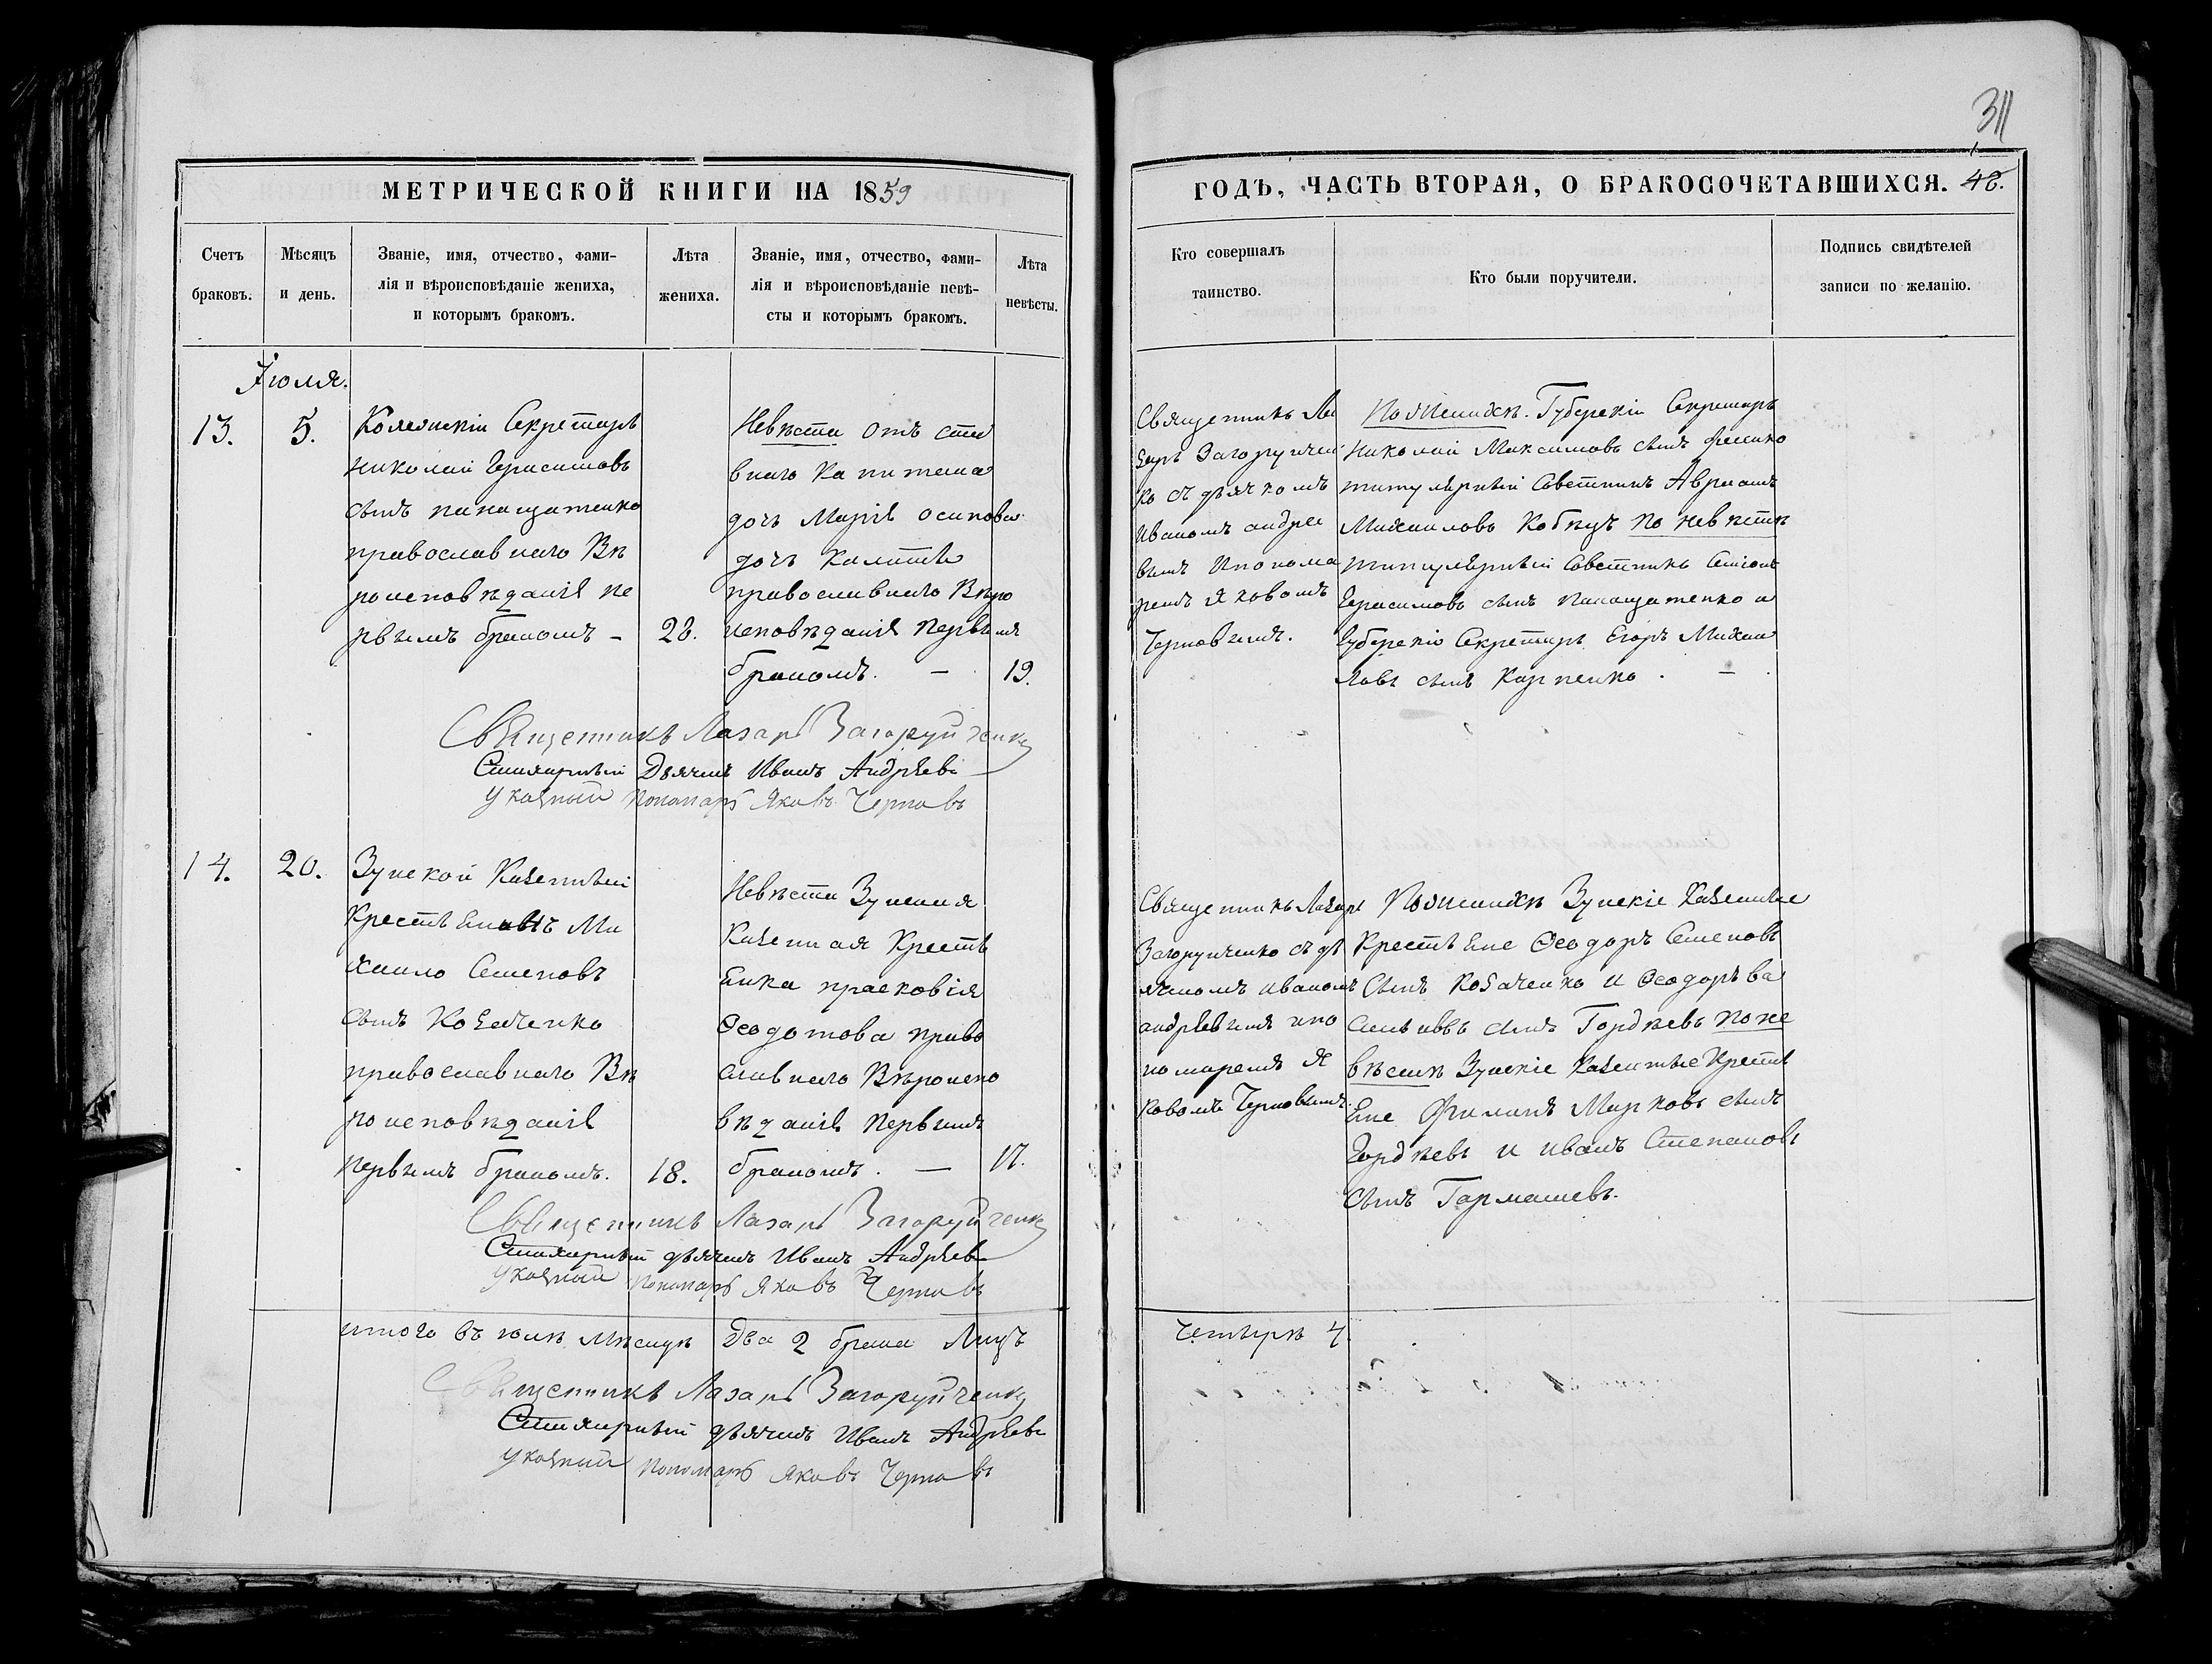 311
МЕТРИЧЕСКОЙ КНИГИ НА 1859
ГОДЪ, ЧАСТЬ ВТОРАЯ, О БРАКОСОЧЕТАВШИХСЯ. 48.
Счетъ браковъ.
Мѣсяцъ и день.
Званіе, имя, отчество, фами-
лія и вѣроисповѣданіе жениха,
и которымъ бракомъ.
Лѣта жениха.
Званіе, имя, отчество, фами-
лія и вѣроисповѣданіе невѣ-
сты и которымъ бракомъ.
Лѣта невѣсты.
Кто совершалъ
таинство.
Кто были поручители.
Подпись свидѣтелей
записи по желанію.
Іюля.
13.
5.
Секретарь
Николай Герасимовъ
сынъ
православнаго Вѣ
роисповѣданія пе
рвымъ бракомъ –
Невѣста отъ ста
внаго Капитана
дочь Марія Осипова
дочь
православнаго Вѣро
исповѣданія первымъ
бракомъ. –
19.
Священникъ Ла
зарь Загоруйчен
ко съ дьячкомъ
Иваномъ Андрее
вымъ и понома
ремъ Яковомъ
Черновымъ.
По женихѣ. Губерскій Секретарь
Николай Максимовъ сынъ
титулярный Советникъ Авраамъ
Михаиловъ по невѣстѣ
титулярный Советникъ Симіонъ
Герасимовъ сынъ и
Губерскій Секретарь Егоръ Михаи
ловъ сынъ Карпенко. –
Священникъ Лазарь Загоруйченко
Стихарный Дьячекъ Иванъ Андрѣевъ
Указный Пономарь Яковъ Черновъ
14.
20.
Зуиской Казенный
Ми
хаило Семеновъ
сынъ Козаченко
православнаго Вѣ
роисповѣданія
первымъ бракомъ.
18.
Невѣста Зуиская
Казенная Крестья
енка прасковія
Ѳеодотова право
славнаго Вѣроиспо
вѣданія первымъ
бракомъ. –
17.
Священникъ Лазарь
Загоруйченко съ дь
ячкомъ Иваномъ
Андрѣевымъ и по
номаремъ Я
ковомъ Черновымъ.
По женихѣ Зуискіе Казенные
Крестьене Ѳеодоръ Семеновъ
сынъ Козаченко и Ѳеодоръ Ва
сильивъ сынъ Гордѣевъ по не
вѣстѣ Зуискіе Казенные Кресть
ене Филипъ Марковъ сынъ
Гордѣевъ и Иванъ Степановъ
сынъ Гармашевъ.
Священникъ Лазарь Загоруйченко
Стихарный дьячекъ Иванъ Андрѣевъ
Указный Пономарь Яковъ Черновъ
итого въ іюлѣ мѣсяцѣ Два 2 брака Лицъ
четырѣ 4.
Священникъ Лазарь Загоруйченко
Стихарный дьячекъ Иванъ Андрѣевъ
Указный Пономарь Яковъ Черновъ